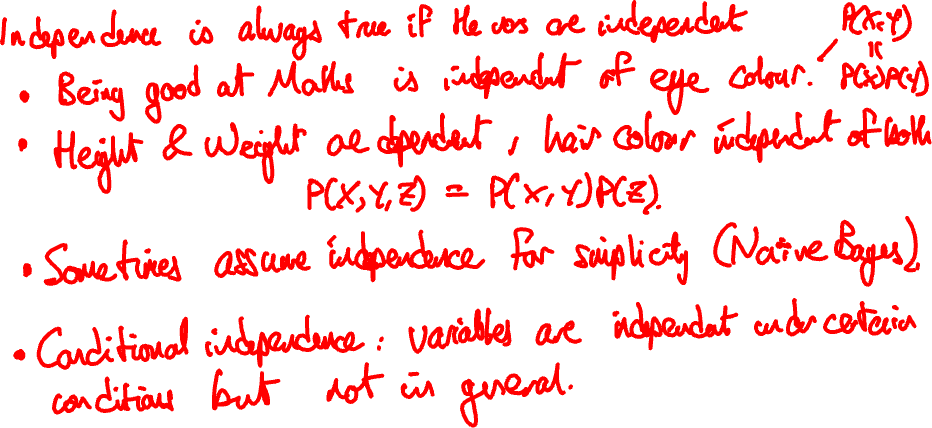 Independence is always true if the vars are independent
P(X,Y)
=
P(X)P(Y)
• Being good at Maths is independent of eye colour.
• Height & Weight are dependent, hair colour independent of both
P(X,Y,Z) = P(X,Y)P(Z).
• Sometimes assume independence for simplicity (Naive Bayes).
• Conditional independence: variables are independent under certain
conditions but not in general.